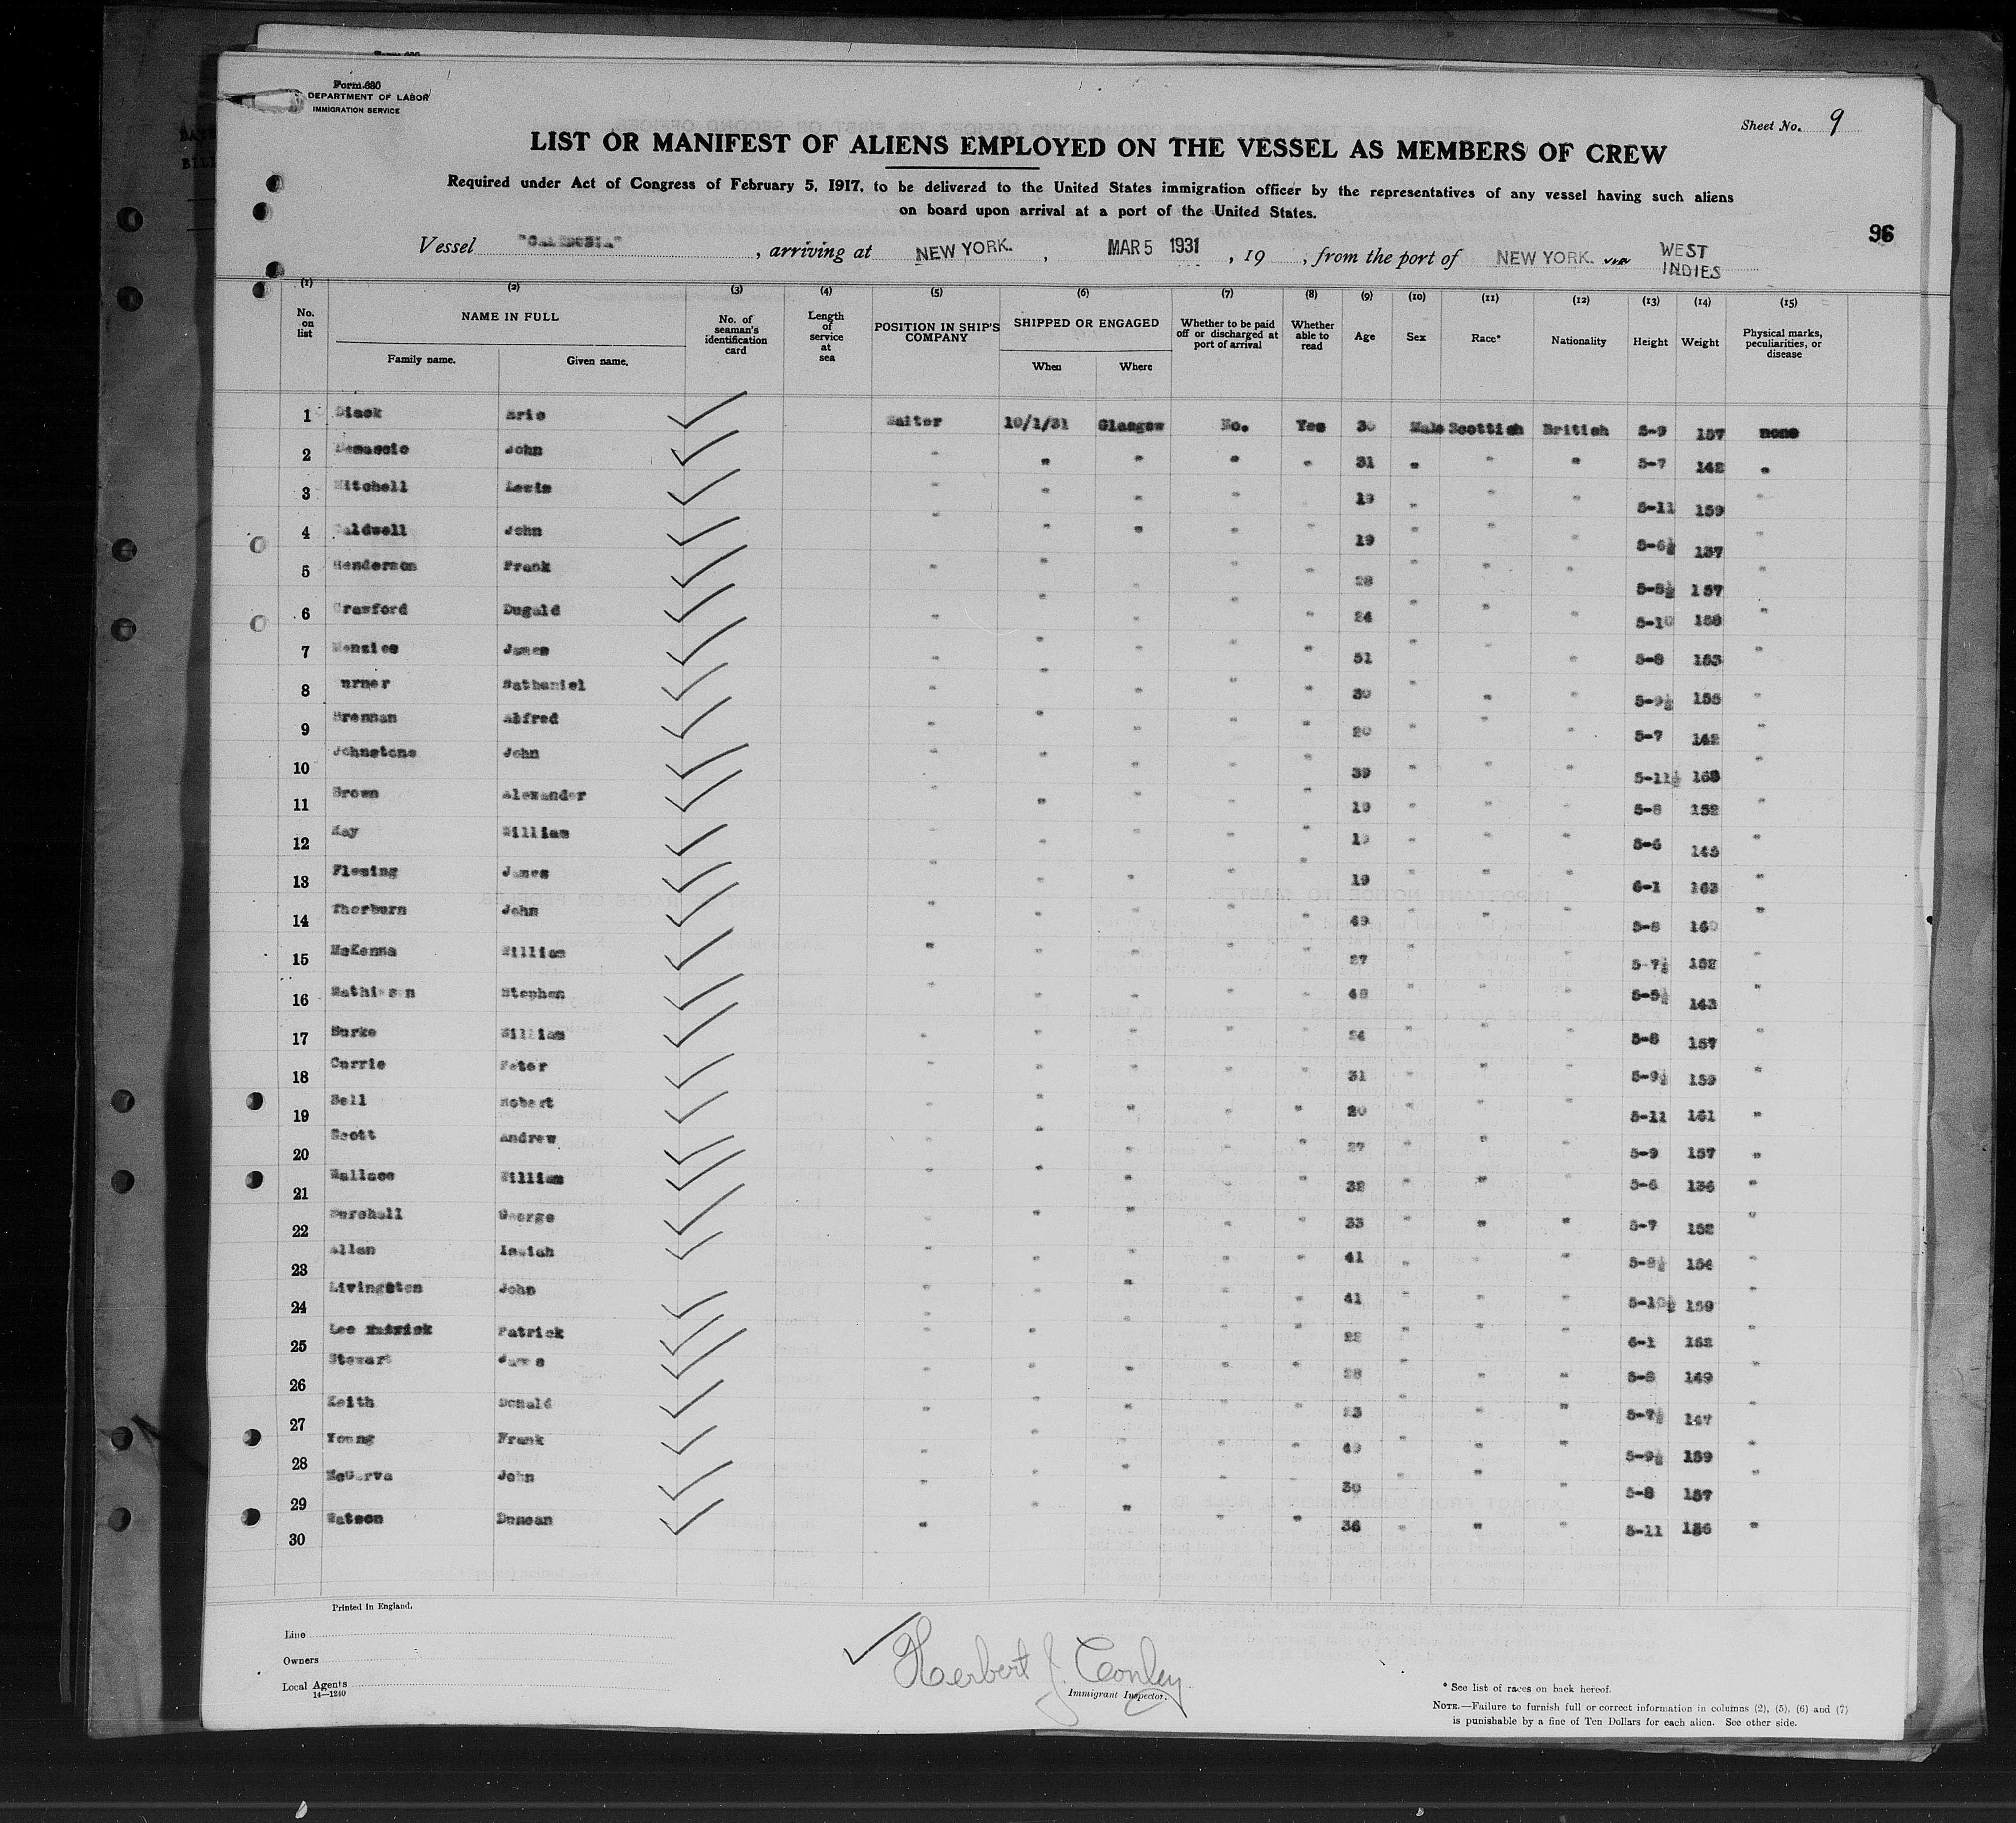 Form 680
DEPARTMENT OF LABOR
IMMIGRATION SERVICE
Sheet No. 9
LIST OR MANIFEST OF ALIENS EMPLOYED ON THE VESSEL AS MEMBERS OF CREW
Required under Act of Congress of February 5, 1917, to be delivered to the United States immigration officer by the representatives of any vessel having such aliens
on board upon arrival at a port of the United States.
96
Vessel "CALEDONIA", arriving at NEW YORK., MAR 5 1931, 19 , from the port of NEW YORK. WEST INDIES
(1) (2) (3) (4) (5) (6) (7) (8) (9) (10) (11) (12) (13) (14) (15)
No. on list NAME IN FULL Family name. Given name. No. of seaman's identification card Length of service at sea POSITION IN SHIP'S COMPANY SHIPPED OR ENGAGED When Where Whether to be paid off or discharged at port of arrival Whether able to read Age Sex Race* Nationality Height Weight Physical marks, peculiarities, or disease
1 Diack Eric Waiter 10/1/31 Glasgow No. Yes 30 Male Scottish British 5-9 157 none
2 John " " " " " 31 " " " 5-7 142 "
3 Mitchell Lewis " " " " 19 " " " 5-11 159 "
4 Caldwell John " " " " " 19 " " " 5-6½ 137 "
5 Henderson Frank " " " " " 28 " " " 5-8½ 157 "
6 Crawford Dugald " " " " " 24 " " " 5-10 158 "
7 Menzies James " " " " " 51 " " " 5-8 153 "
8 urner Nathaniel " " " " " 30 " " " 5-9½ 155 "
9 Brennan Alfred " " " " " 20 " " " 5-7 142 "
10 Johnstone John " " " " " 39 " " " 5-11½ 163 "
11 Brown Alexander " " " " " 19 " " " 5-8 152 "
12 Kay William " " " " " 19 " " " 5-6 145 "
13 Fleming James " " " " " 19 " " " 6-1 163 "
14 Thorburn John " " " " " 49 " " " 5-8 160 "
15 McKenna William " " " " " 27 " " " 5-7½ 152 "
16 Mathieson Stephen " " " " " 48 " " " 5-5½ 143 "
17 Burke William " " " " " 24 " " " 5-8 157 "
18 Currie Peter " " " " " 31 " " " 5-9½ 159 "
19 Bell Robert " " " " " 20 " " " 5-11 161 "
20 Scott Andrew " " " " " 27 " " " 5-9 157 "
21 Wallace William " " " " " 32 " " " 5-6 136 "
22 Burchall George " " " " " 33 " " " 5-7 152 "
23 Allan Isaiah " " " " " 41 " " " 5-8½ 154 "
24 Livingston John " " " " " 41 " " " 5-10½ 159 "
25 Lee Patrick " " " " " 22 " " " 6-1 162 "
26 Stewart James " " " " " 28 " " " 5-8 149 "
27 Keith Donald " " " " " 23 " " " 5-7½ 147 "
28 Young Frank " " " " " 49 " " " 5-9½ 159 "
29 McGarva John " " " " " 30 " " " 5-8 157 "
30 Watson Duncan " " " " " 36 " " " 5-11 156 "
Printed in England.
Line
Owners
Local Agents
14—1240
Herbert J. Conley
Immigrant Inspector.
* See list of races on back hereof.
NOTE.—Failure to furnish full or correct information in columns (2), (5), (6) and (7)
is punishable by a fine of Ten Dollars for each alien. See other side.